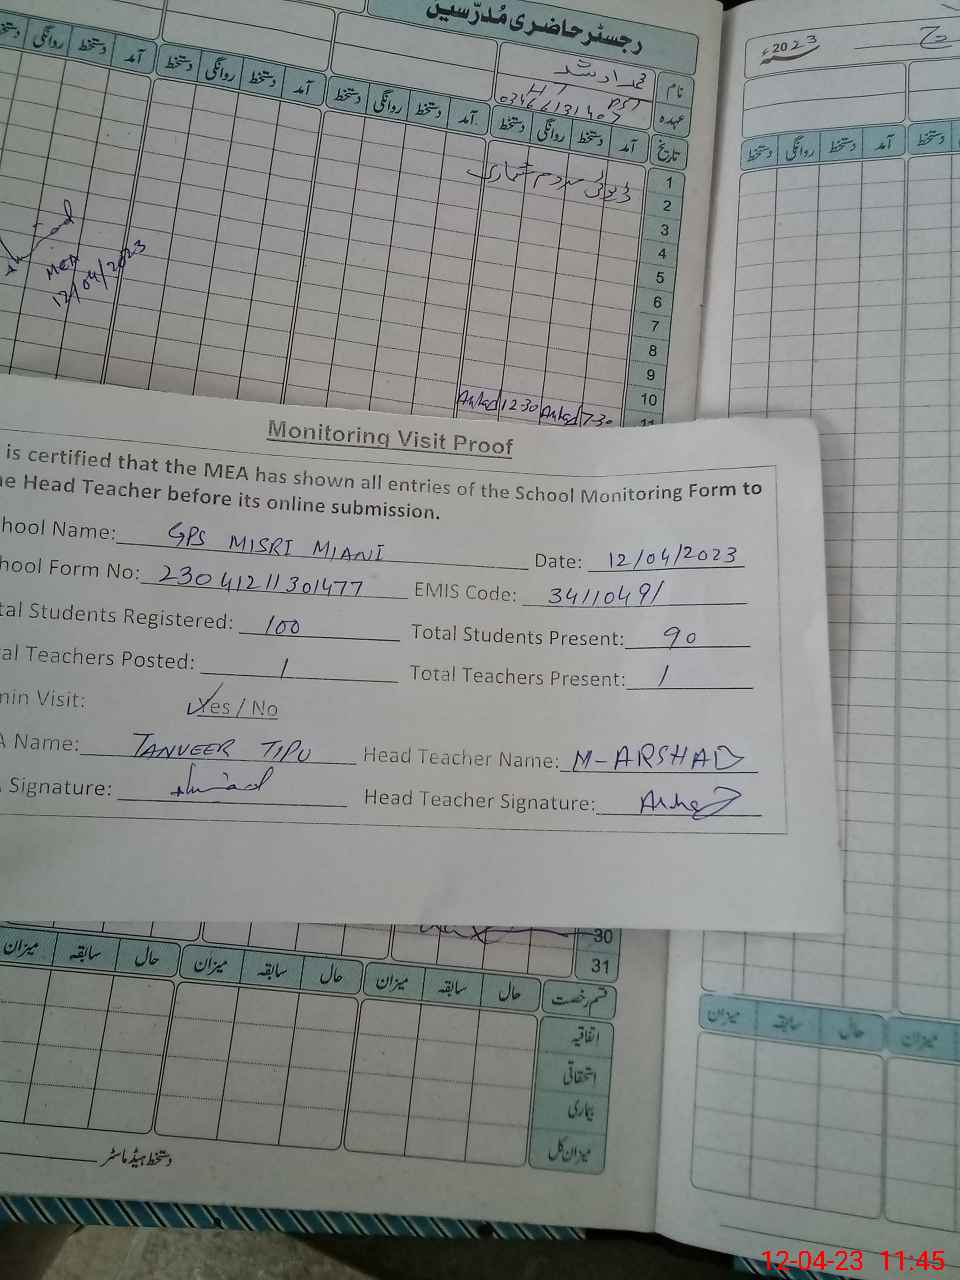 رجسٹر حاضری مُدرّسین
2023ء
نام محمد ارشد
عہدہ HT PST
03466131407
تاریخ آمد دستخط روانگی دستخط آمد دستخط روانگی دستخط آمد دستخط روانگی دستخط
آمد دستخط روانگی دستخط
1 ڈیوٹی مردم شماری
2
3
4
5
6
7
8
9
10 7-30 Arshad 12-30 Arshad
11
MEA
12/04/2023
Monitoring Visit Proof
is certified that the MEA has shown all entries of the School Monitoring Form to
he Head Teacher before its online submission.
hool Name: GPS MISRI MIANI Date: 12/04/2023
hool Form No: 23041211301477 EMIS Code: 34110491
tal Students Registered: 100 Total Students Present: 90
al Teachers Posted: 1 Total Teachers Present: 1
min Visit: Yes / No
A Name: TANVEER TIPU Head Teacher Name: M-ARSHAD
Signature: Head Teacher Signature: Arshad
30
31
قسم رخصت حال سابقہ میزان حال سابقہ میزان حال سابقہ میزان
میزان حال سابقہ میزان
اتفاقیہ
استحقاقی
بیماری
میزان کل
دستخط ہیڈ ماسٹر
12-04-23 11:45